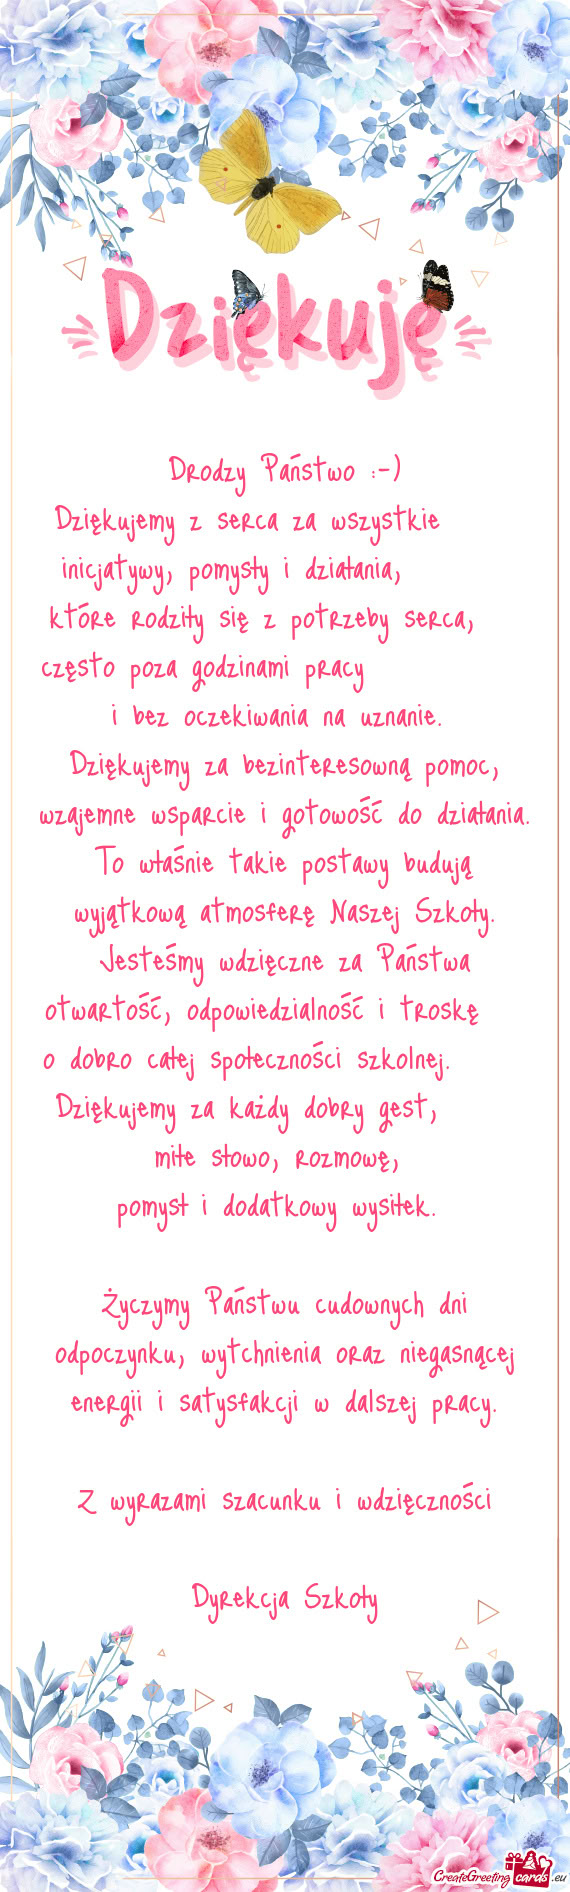 Dziękuję
Drodzy Państwo :-)
Dziękujemy z serca za wszystkie
inicjatywy, pomysły i działania,
które rodziły się z potrzeby serca,
często poza godzinami pracy
i bez oczekiwania na uznanie.
Dziękujemy za bezinteresowną pomoc,
wzajemne wsparcie i gotowość do działania.
To właśnie takie postawy budują
wyjątkową atmosferę Naszej Szkoły.
Jesteśmy wdzięczne za Państwa
otwartość, odpowiedzialność i troskę
o dobro całej społeczności szkolnej.
Dziękujemy za każdy dobry gest,
miłe słowo, rozmowę,
pomysł i dodatkowy wysiłek.
Życzymy Państwu cudownych dni
odpoczynku, wytchnienia oraz niegasnącej
energii i satysfakcji w dalszej pracy.
Z wyrazami szacunku i wdzięczności
Dyrekcja Szkoły
CreateGreetingcards.eu